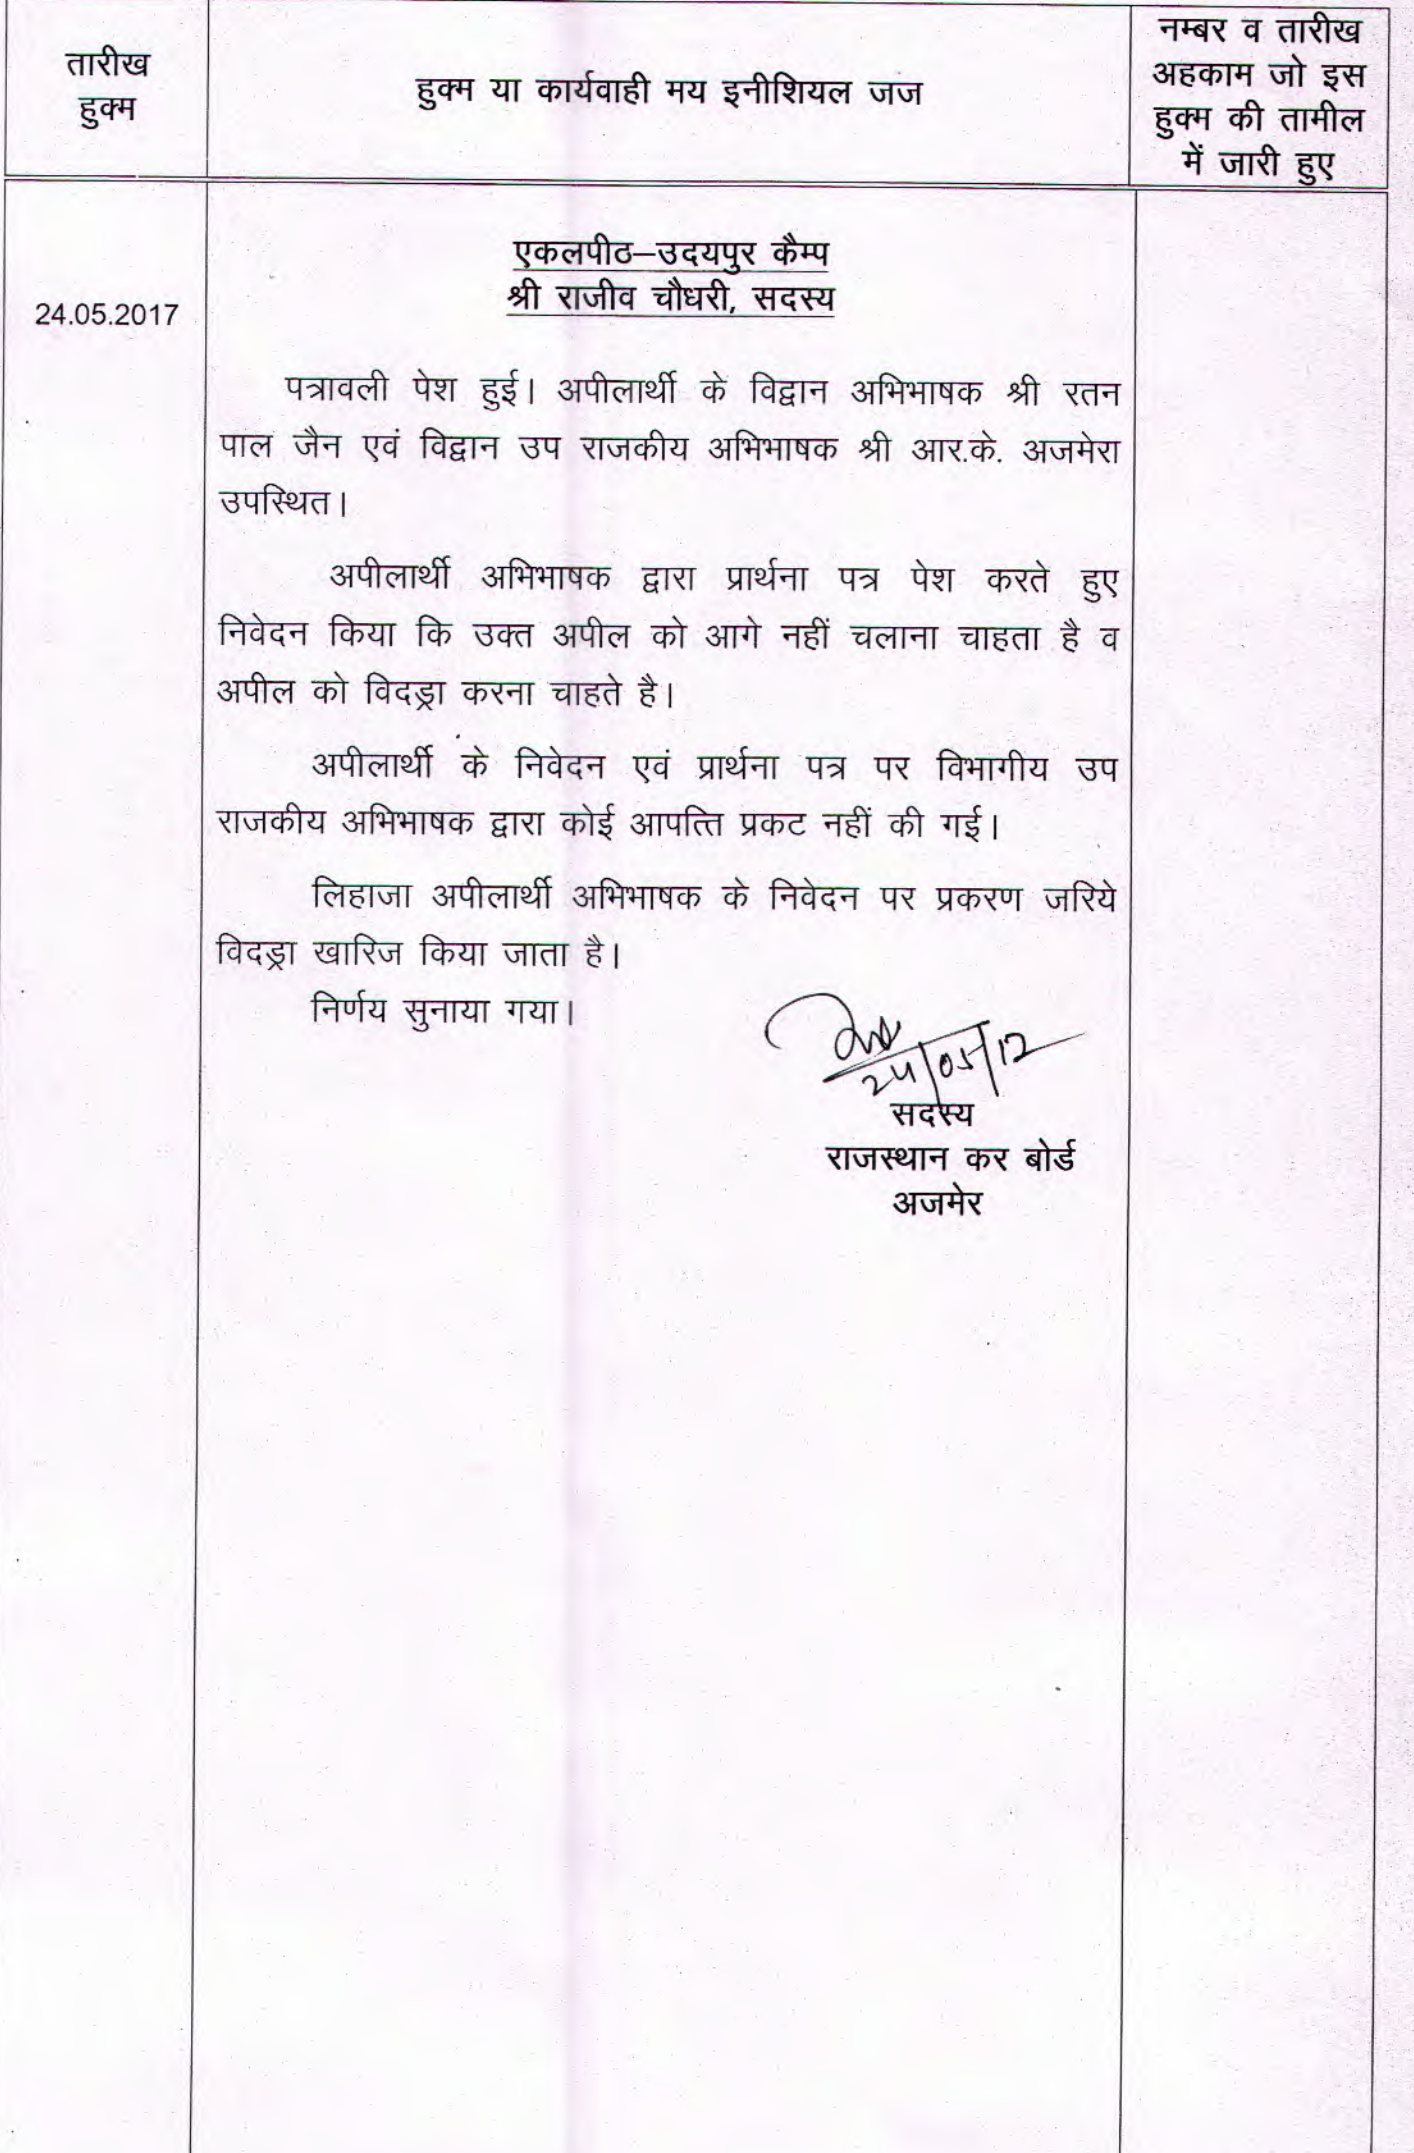 तारीख
हुक्म
हुक्म या कार्यवाही मय इनीशियल जज
नम्बर व तारीख
अहकाम जो इस
हुक्म की तामील
में जारी हुए
24.05.2017
एकलपीठ–उदयपुर कैम्प
श्री राजीव चौधरी, सदस्य
पत्रावली पेश हुई। अपीलार्थी के विद्वान अभिभाषक श्री रतन
पाल जैन एवं विद्वान उप राजकीय अभिभाषक श्री आर.के. अजमेरा
उपस्थित।
अपीलार्थी अभिभाषक द्वारा प्रार्थना पत्र पेश करते हुए
निवेदन किया कि उक्त अपील को आगे नहीं चलाना चाहता है व
अपील को विदड्रा करना चाहते है।
अपीलार्थी के निवेदन एवं प्रार्थना पत्र पर विभागीय उप
राजकीय अभिभाषक द्वारा कोई आपत्ति प्रकट नहीं की गई।
लिहाजा अपीलार्थी अभिभाषक के निवेदन पर प्रकरण जरिये
विदड्रा खारिज किया जाता है।
निर्णय सुनाया गया।
24/05/17
सदस्य
राजस्थान कर बोर्ड
अजमेर